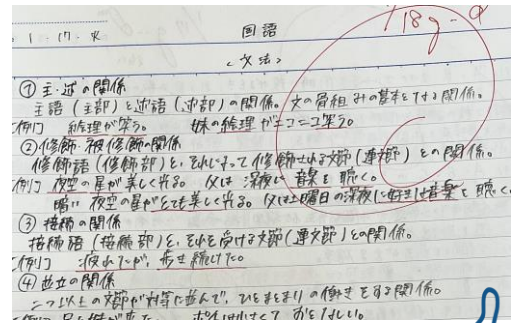 1.17.火 国語
18g-9
〈文法〉
①主・述の関係
主語(主部)と述語(述部)の関係。文の骨組みの基本となる関係。
〔例〕 絵理が笑う。 妹の絵理がニコニコ笑う。
②修飾・被修飾の関係
修飾語(修飾部)と、それによって修飾される文節(連文節)との関係。
〔例〕 夜空の星が美しく光る。 父は深夜に音楽を聴く。
暗い夜空の星がとても美しく光る。 父は土曜日の深夜に好きな音楽を聴く。
③接続の関係
接続語(接続部)と、それを受ける文節(連文節)との関係。
〔例〕 疲れたが、歩き続けた。
④並立の関係
二つ以上の文節が対等に並んで、ひとまとまりの働きをする関係。